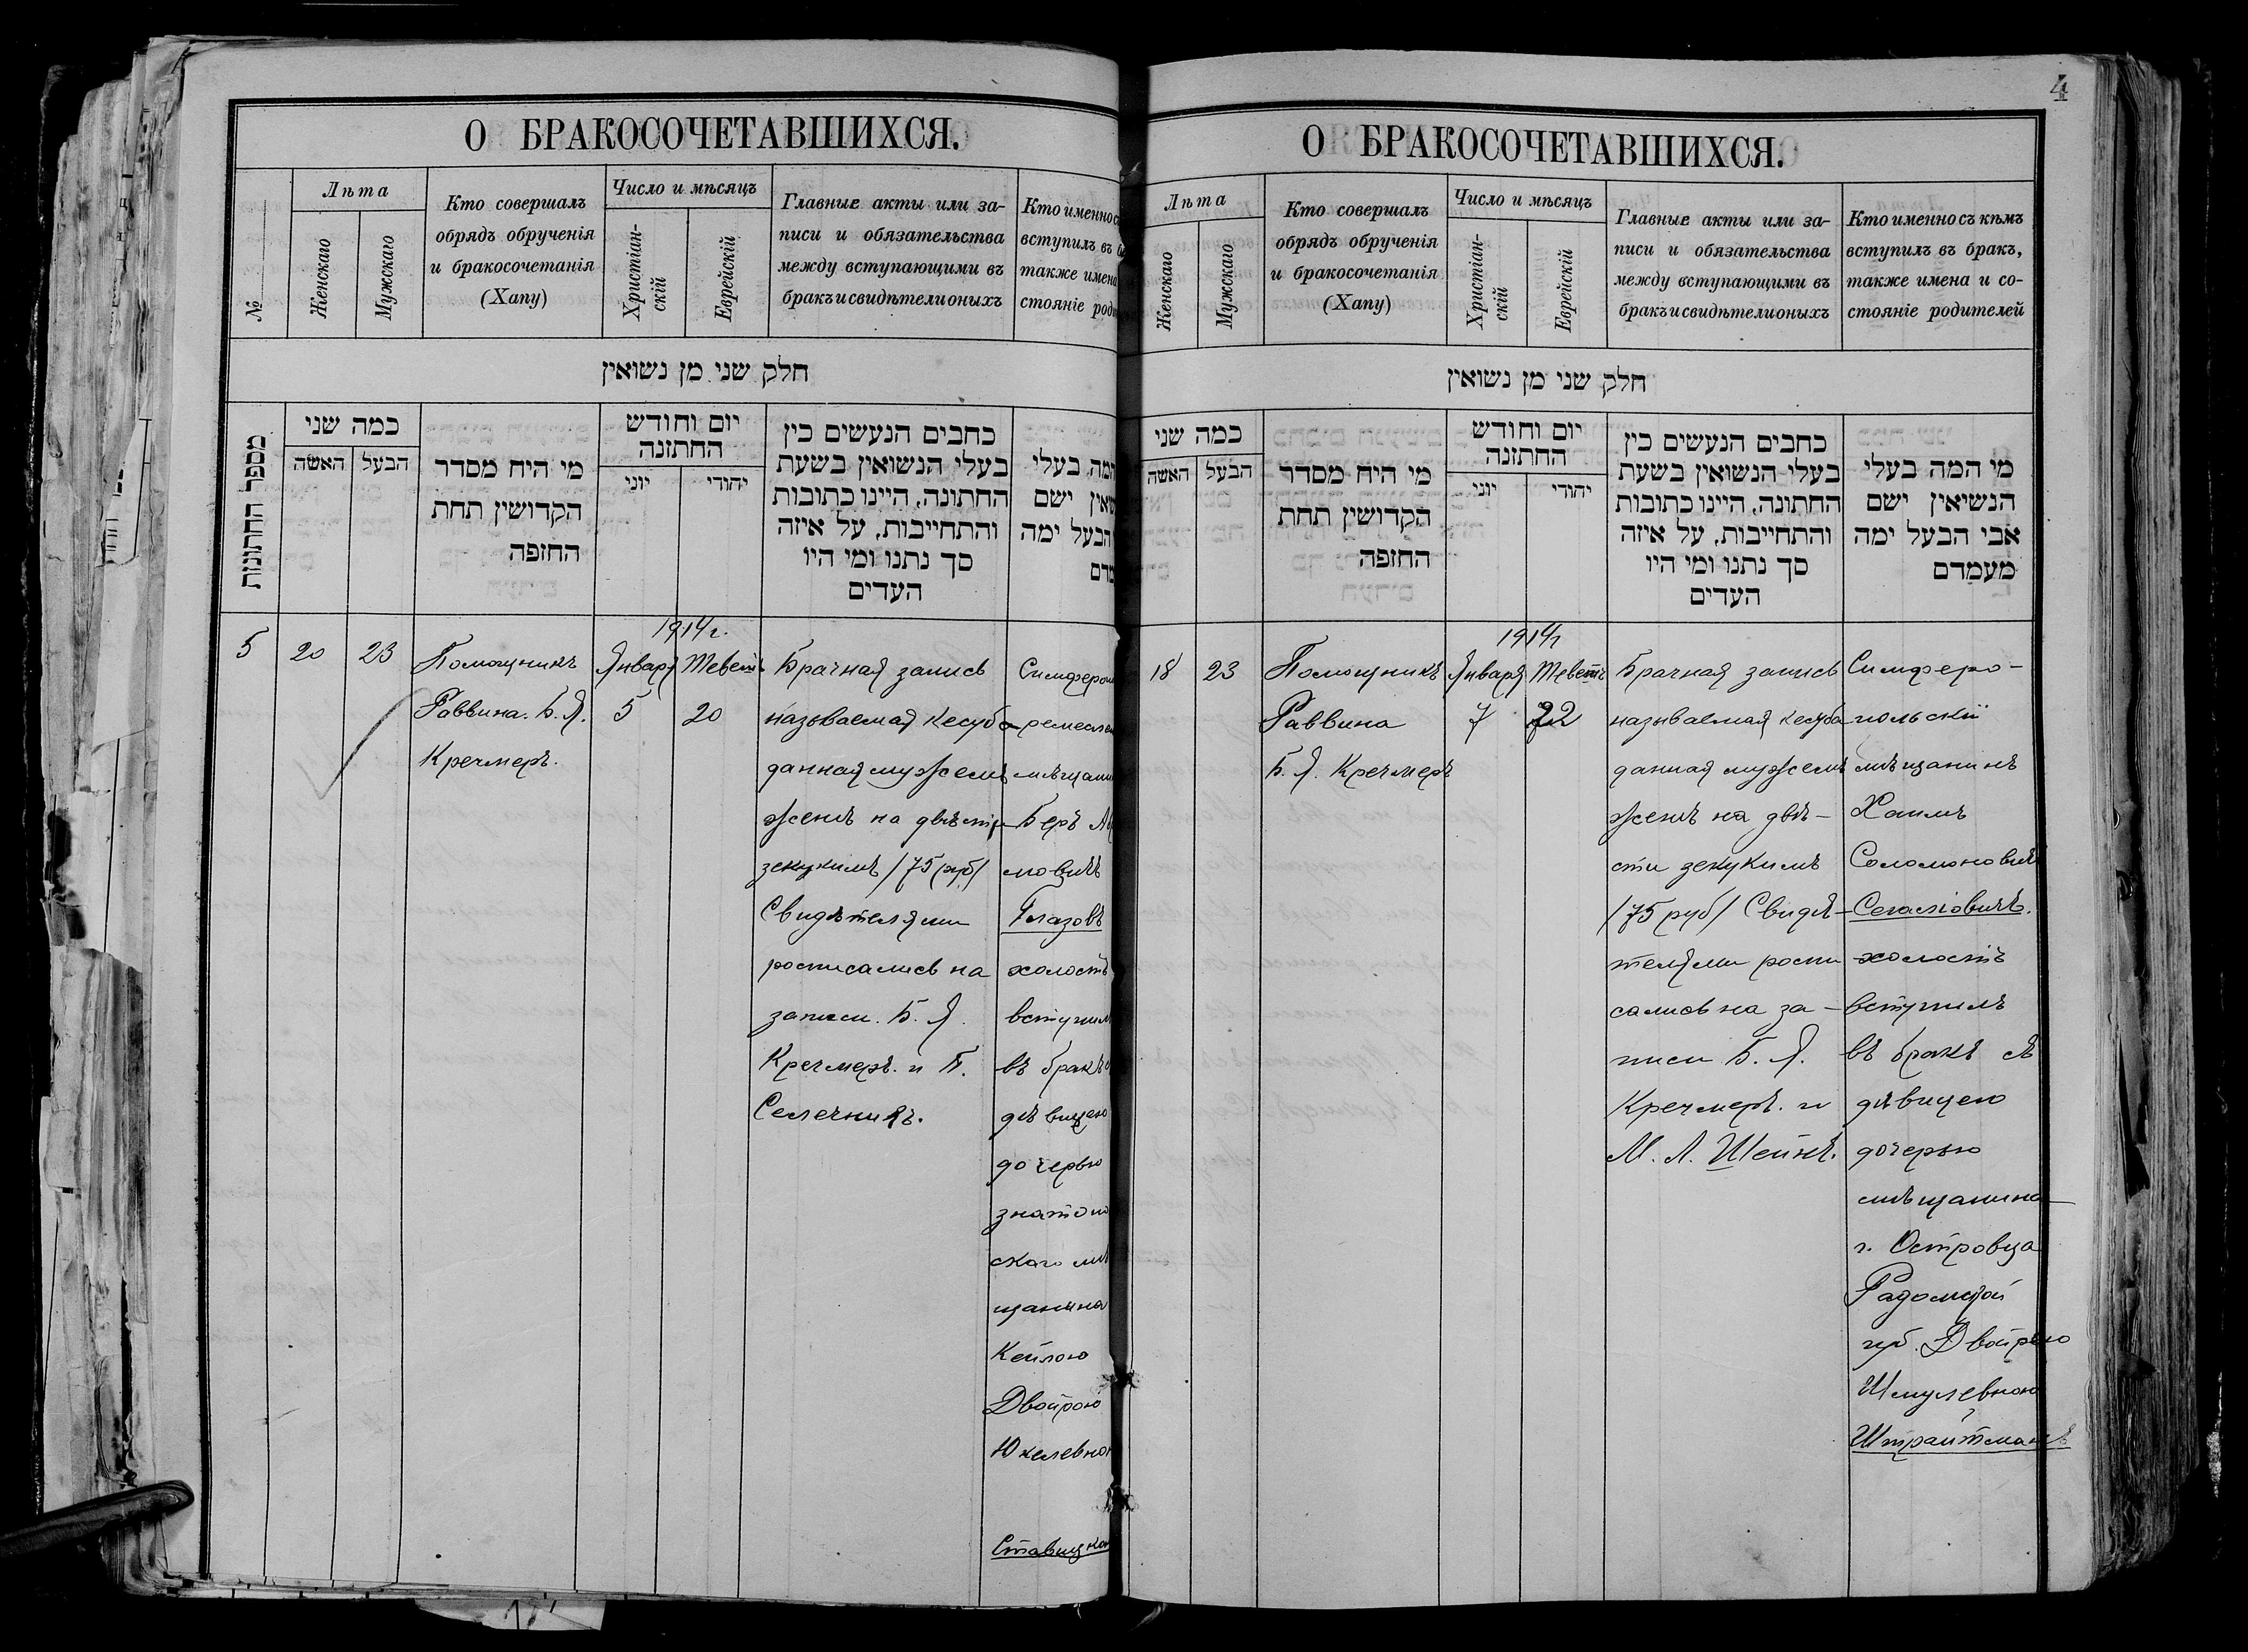 О БРАКОСОЧЕТАВШИХСЯ.
№
Лѣта
Женскаго
Мужскаго
Кто совершалъ
обрядъ обрученія
и бракосочетанія
(Хапу)
Число и мѣсяцъ
Христіан-
скій
Еврейскій
Главные акты или за-
писи и обязательства
между вступающими въ
бракъ и свидѣтели оныхъ
Кто именно с
вступилъ въ б
также имена
стояніе род
חלק שני מן נשואין
מספר החתונות
כמה שני
האשה
הבעל
מי היח מסדר
הקדושין תחת
החופה
יום וחודש
החתונה
יוני
יהודי
כתבים הנעשים כין
בעלי הנשואין בשעת
החתונה, היינו כתובות
והתחייבות, על איזה
סך נתנו ומי היו
העדים
המה בעלי
ישם
הבעל ימה
5
20
23
Помощникъ
Раввина. Б. Я.
Кречмеръ.
1914 г.
Января
5
Теветъ
20
Брачная запись
называемая кесуба
данная мужемъ
женѣ на двѣсти
зекукимъ /75 руб/
Свидѣтелями
росписались на
записи. Б. Я.
Кречмеръ. и П.
Селечникъ.
Симфероп
ремеслен
мѣщани
Беръ
мовичъ
Глазовъ
холостъ
вступил
въ бракъ с
дѣвицею
дочерью
знатоп
скаго мѣ
щанина
Кейлою
Двойрою
Юкелевною
Ставицкою
4
О БРАКОСОЧЕТАВШИХСЯ.
Лѣта
Женскаго
Мужскаго
Кто совершалъ
обрядъ обрученія
и бракосочетанія
(Хапу)
Число и мѣсяцъ
Христіан-
скій
Еврейскій
Главные акты или за-
писи и обязательства
между вступающими въ
бракъ и свидѣтели оныхъ
Кто именно съ кѣмъ
вступилъ въ бракъ,
также имена и со-
стояніе родителей
חלק שני מן נשואין
כמה שני
האשה
הבעל
מי היח מסדר
הקדושין תחת
החופה
יום וחודש
החתונה
יוני
יהודי
כתבים הנעשים כין
בעלי הנשואין בשעת
החתונה, היינו כתובות
והתחייבות, על איזה
סך נתנו ומי היו
העדים
מי המה בעלי
הנשיאין ישם
אבי הבעל ימה
מעמדם
18
23
Помощникъ
Раввина
Б. Я. Кречмеръ
1914 г
Января
7
Теветъ
22
Брачная запись
называемая кесуба
данная мужемъ
женѣ на двѣ-
сти зекукимъ
/75 руб/ Свидѣ-
телями роспи
сались на за-
писи Б. Я.
Кречмеръ. и
М. Л. Штейнъ.
Симферо-
польскій
мѣщанинъ
Хаимъ
Соломоновичъ
Сегаліовичъ.
холостъ
вступилъ
въ бракъ съ
дѣвицею
дочерью
мѣщанина
г. Островца
Радомской
губ. Двойрою
Шмулевною
Штрайтманъ